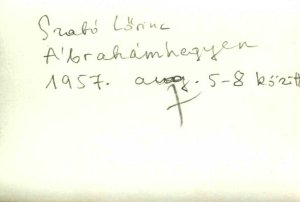 Szabó Lőrinc
Ábrahámhegyen
1957. aug. 5-8 között